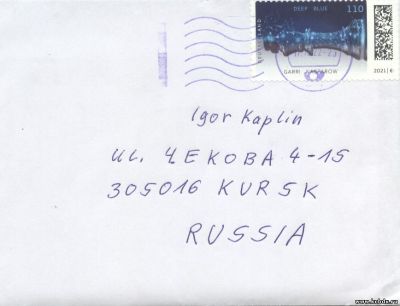 DEEP BLUE
110
DEUTSCHLAND
GARRI KASPAROW
2021 | €
Igor Kaplin
ul. ЧEKOBA 4-15
305016 KURSK
RUSSIA
www.kxbdx.ru